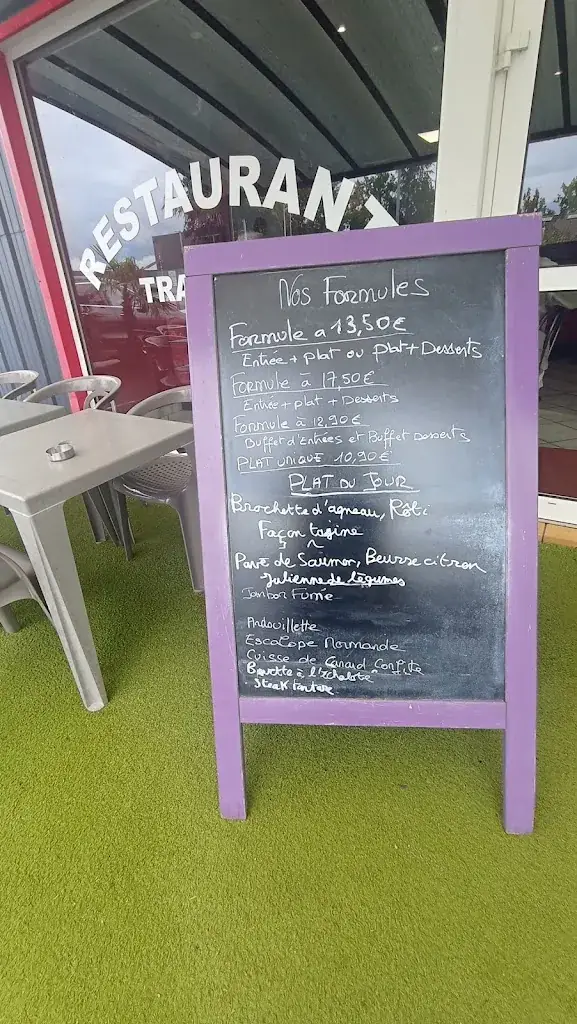 RESTAURANT
TRA
Nos Formules
Formule a 13,50€
Entrée + plat ou plat + Desserts
Formule à 17,50€
Entrée + plat + Desserts
Formule à 12,90€
Buffet d'Entrées et Buffet Desserts
PLAT UNIQUE 10,90€
PLAT DU JOUR
Brochette d'agneau, Rôti
Façon tagine
Pavé de Saumon, Beurre citron
Julienne de légumes
Jambon Fumé
Andouillette
Escalope Normande
Cuisse de Canard Confite
Bavette à l'échalote
Steak tartare